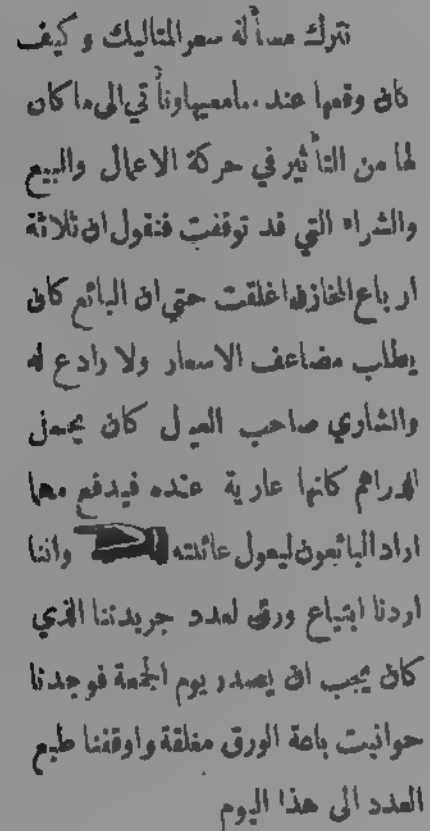 نترك مسألة سعر المتاليك وكيف
كان وقعها عند ..امعيها ونأتي الى ما كان
لها من التأثير في حركة الاعمال والبيع
والشراء التي قد توقفت فنقول ان ثلاثة
ارباع المخازن اغلقت حتي ان البائع كان
يطلب مضاعف الاسعار ولا رادع له
والشاري صاحب العيال كان يحمل
الدراهم كانها عارية عنده فيدفع مهما
اراد البائعون ليعول عائلته واننا
اردنا ابتياع ورق لعدد جريدتنا الذي
كان يجب ان يصدر يوم الجمعة فوجدنا
حوانيت باعة الورق مغلقة واوقفنا طبع
العدد الى هذا اليوم